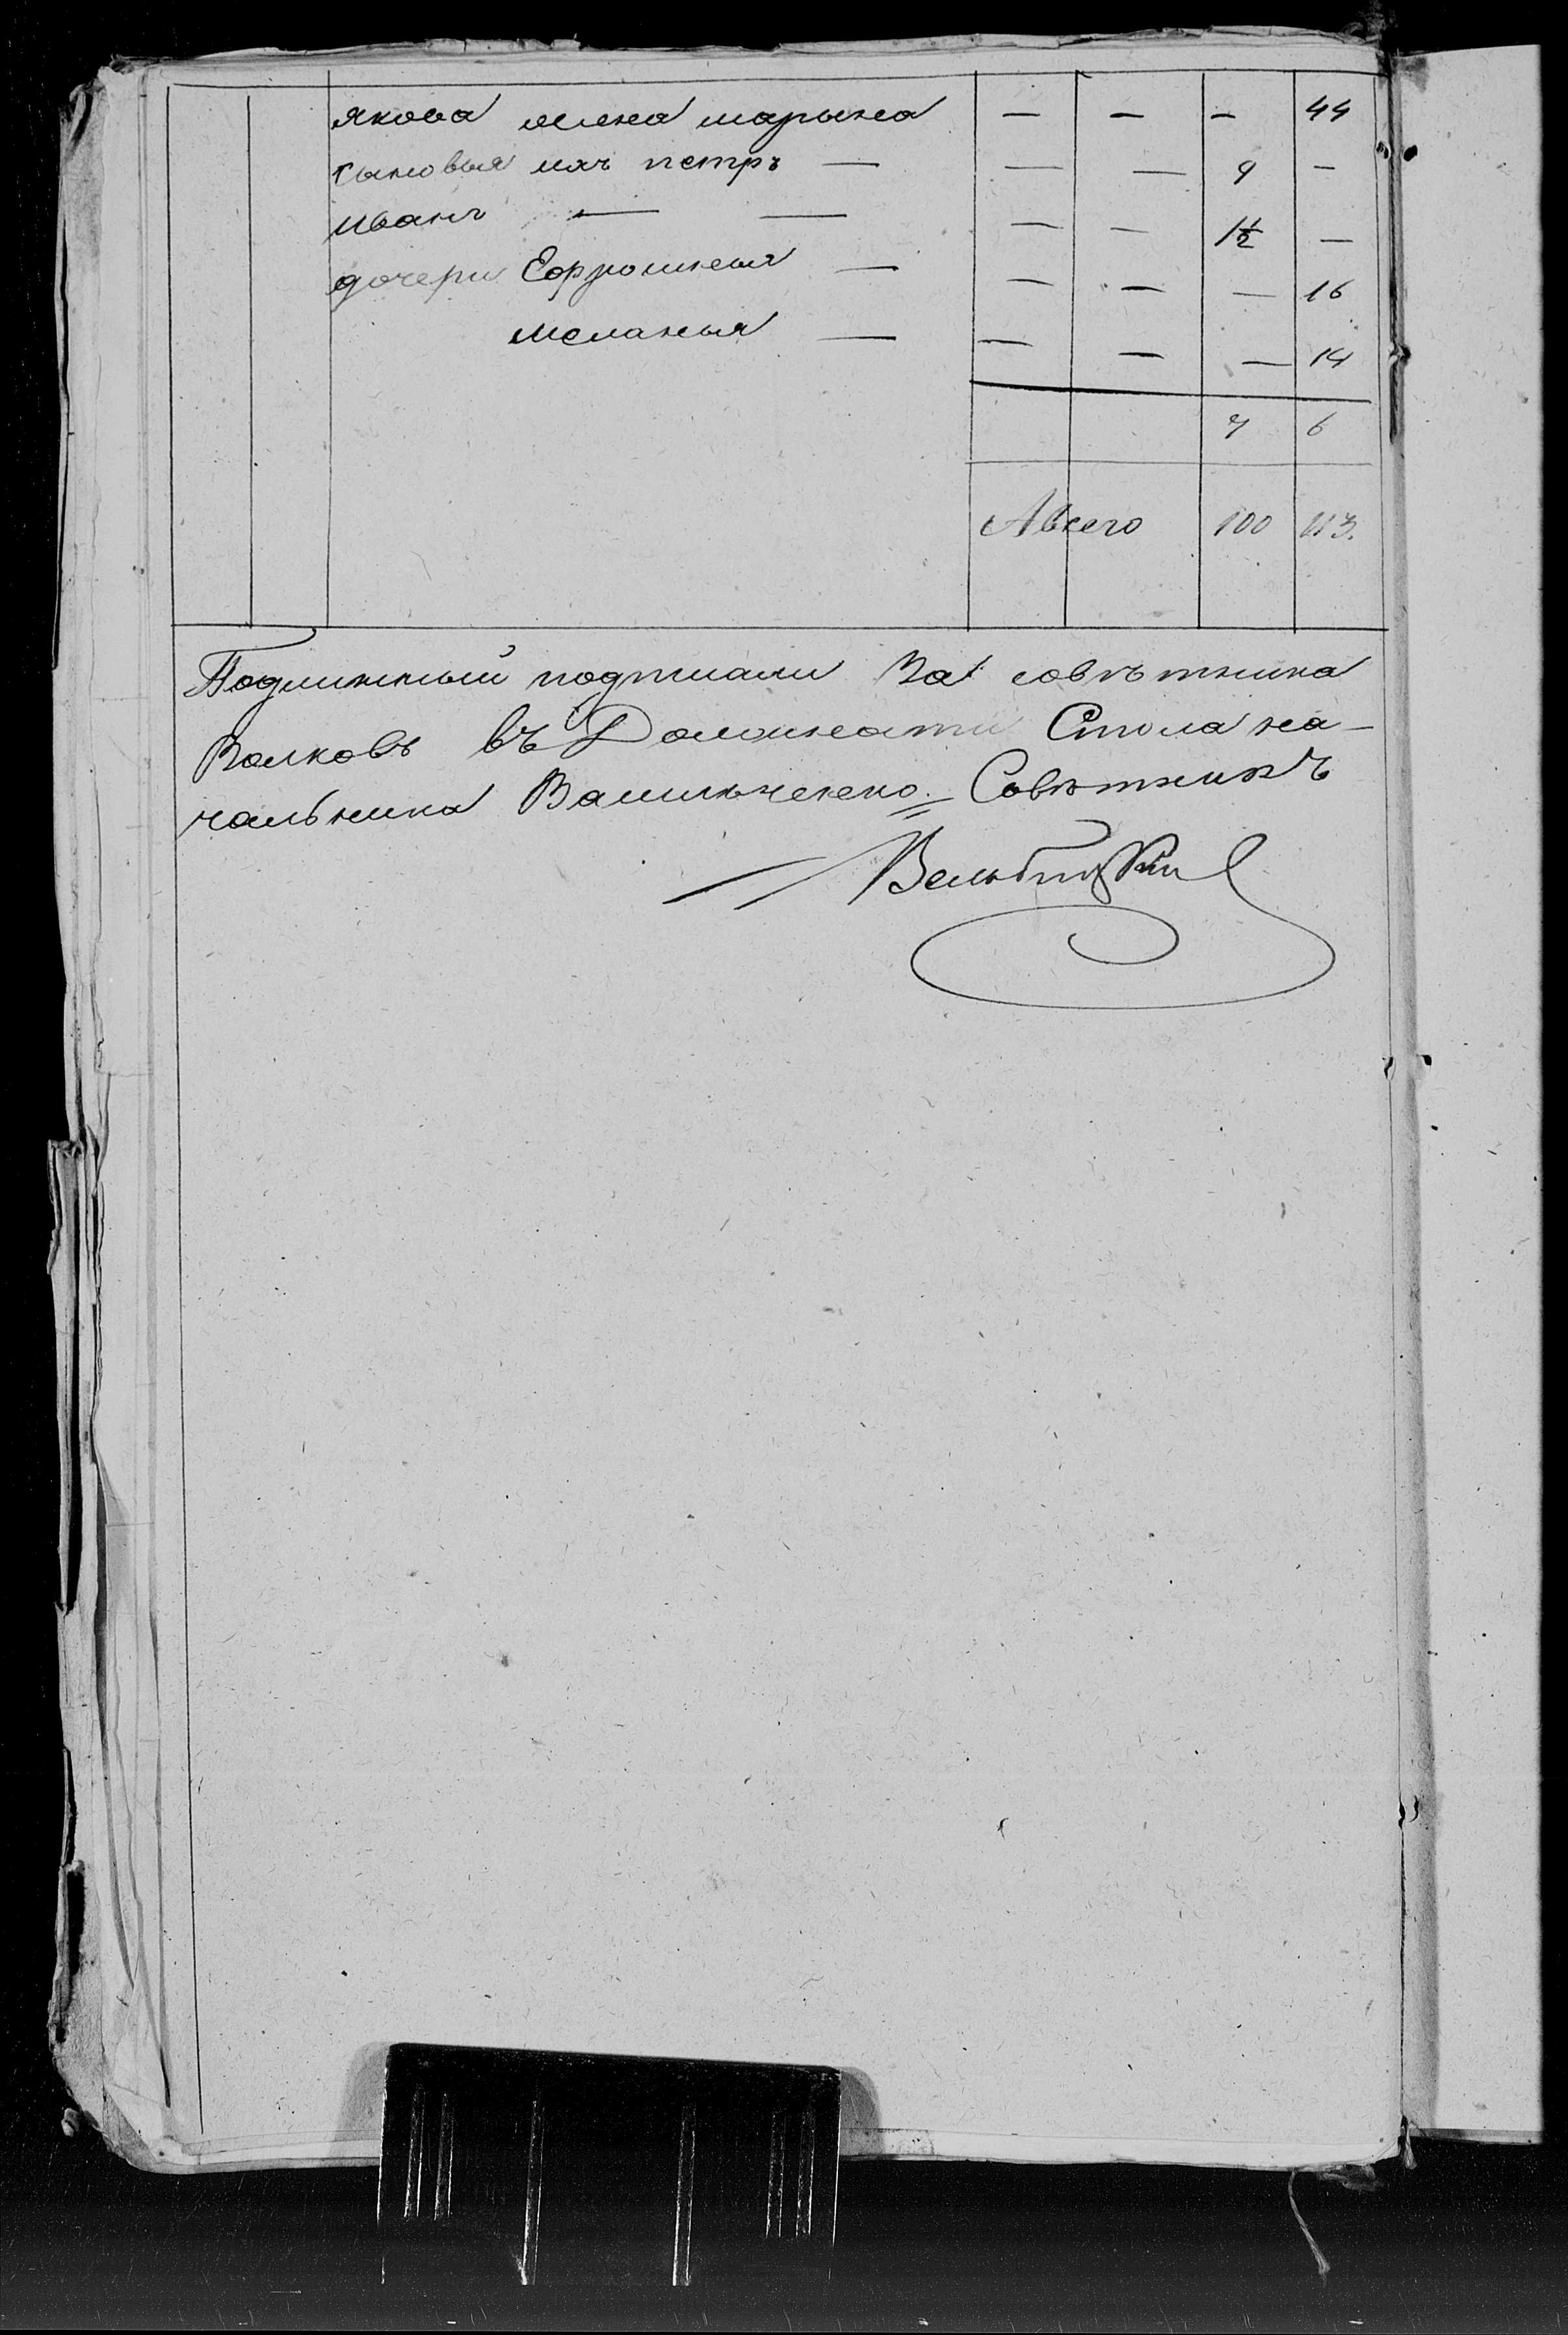 якова жена марьина — — — 44
сыновья ихъ петръ — — — 9 —
иванъ — — — — 1½ —
дочери Ефросинья — — — — 16
меланья — — — — 14
7 6
А всего 100 113.
Подлинный подписали За совѣтника
Волковъ въ Должности Стола на-
чальника Васильченко. Совѣтникъ